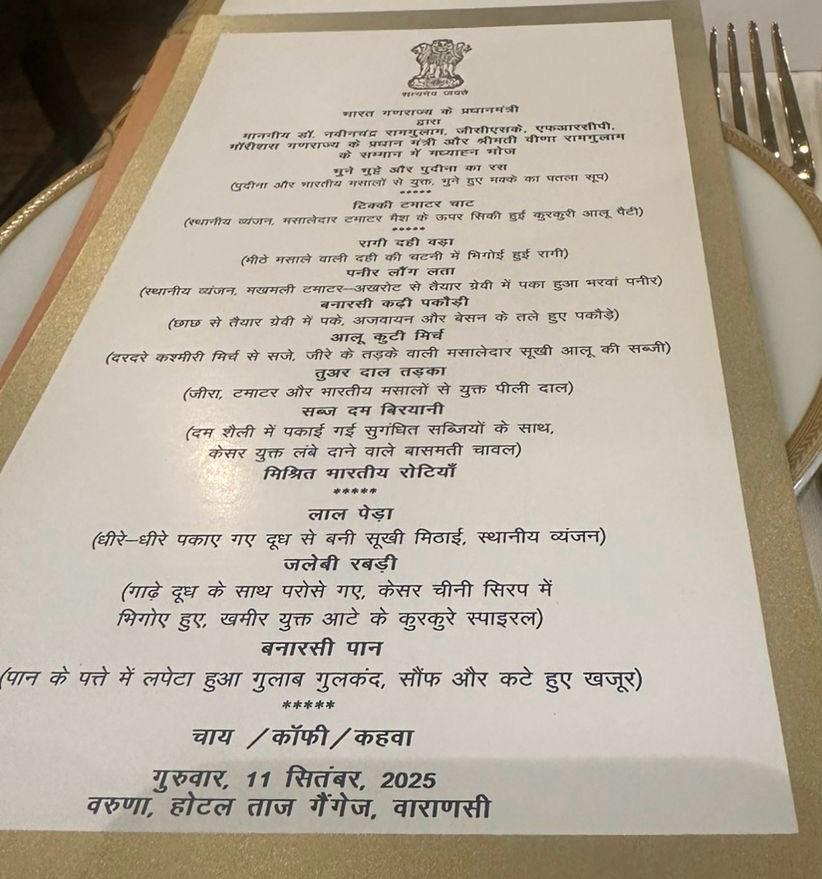 सत्यमेव जयते
भारत गणराज्य के प्रधानमंत्री
द्वारा
माननीय डॉ. नवीनचंद्र रामगुलाम, जीसीएसके, एफआरसीपी,
मॉरीशस गणराज्य के प्रधान मंत्री और श्रीमती वीणा रामगुलाम
के सम्मान में मध्याहन भोज
भुने भुट्टे और पुदीना का रस
(पुदीना और भारतीय मसालों से युक्त, भुने हुए मक्के का पतला सूप)
*****
टिक्की टमाटर चाट
(स्थानीय व्यंजन, मसालेदार टमाटर मैश के ऊपर सिकी हुई कुरकुरी आलू पैटी)
*****
रागी दही वड़ा
(मीठे मसाले वाली दही की चटनी में भिगोई हुई रागी)
पनीर लौंग लता
(स्थानीय व्यंजन, मखमली टमाटर–अखरोट से तैयार ग्रेवी में पका हुआ भरवां पनीर)
बनारसी कढ़ी पकौड़ी
(छाछ से तैयार ग्रेवी में पके, अजवायन और बेसन के तले हुए पकौड़े)
आलू कुटी मिर्च
(दरदरे कश्मीरी मिर्च से सजे, जीरे के तड़के वाली मसालेदार सूखी आलू की सब्जी)
तुअर दाल तड़का
(जीरा, टमाटर और भारतीय मसालों से युक्त पीली दाल)
सब्ज दम बिरयानी
(दम शैली में पकाई गई सुगंधित सब्जियों के साथ,
केसर युक्त लंबे दाने वाले बासमती चावल)
मिश्रित भारतीय रोटियाँ
*****
लाल पेड़ा
(धीरे–धीरे पकाए गए दूध से बनी सूखी मिठाई, स्थानीय व्यंजन)
जलेबी रबड़ी
(गाढ़े दूध के साथ परोसे गए, केसर चीनी सिरप में
भिगोए हुए, खमीर युक्त आटे के कुरकुरे स्पाइरल)
बनारसी पान
(पान के पत्ते में लपेटा हुआ गुलाब गुलकंद, सौंफ और कटे हुए खजूर)
*****
चाय /कॉफी/कहवा
गुरुवार, 11 सितंबर, 2025
वरुणा, होटल ताज गैंगेज, वाराणसी